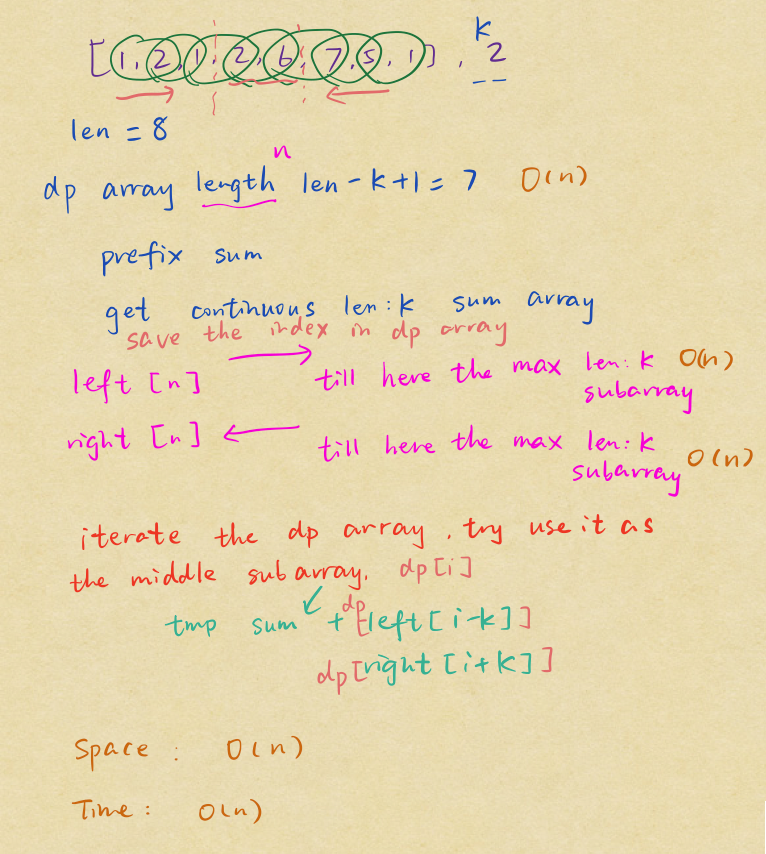 [1, 2, 1, 2, 6, 7, 5, 1] , 2
k
len = 8
n
dp array length len - k + 1 = 7 O(n)
prefix sum
get continuous len: k sum array
save the index in dp array
left [n] till here the max len: k O(n)
subarray
right [n] till here the max len: k
subarray O(n)
iterate the dp array, try use it as
the middle subarray. dp[i]
tmp sum + dp[left[i-k]]
dp[right[i+k]]
Space : O(n)
Time : O(n)